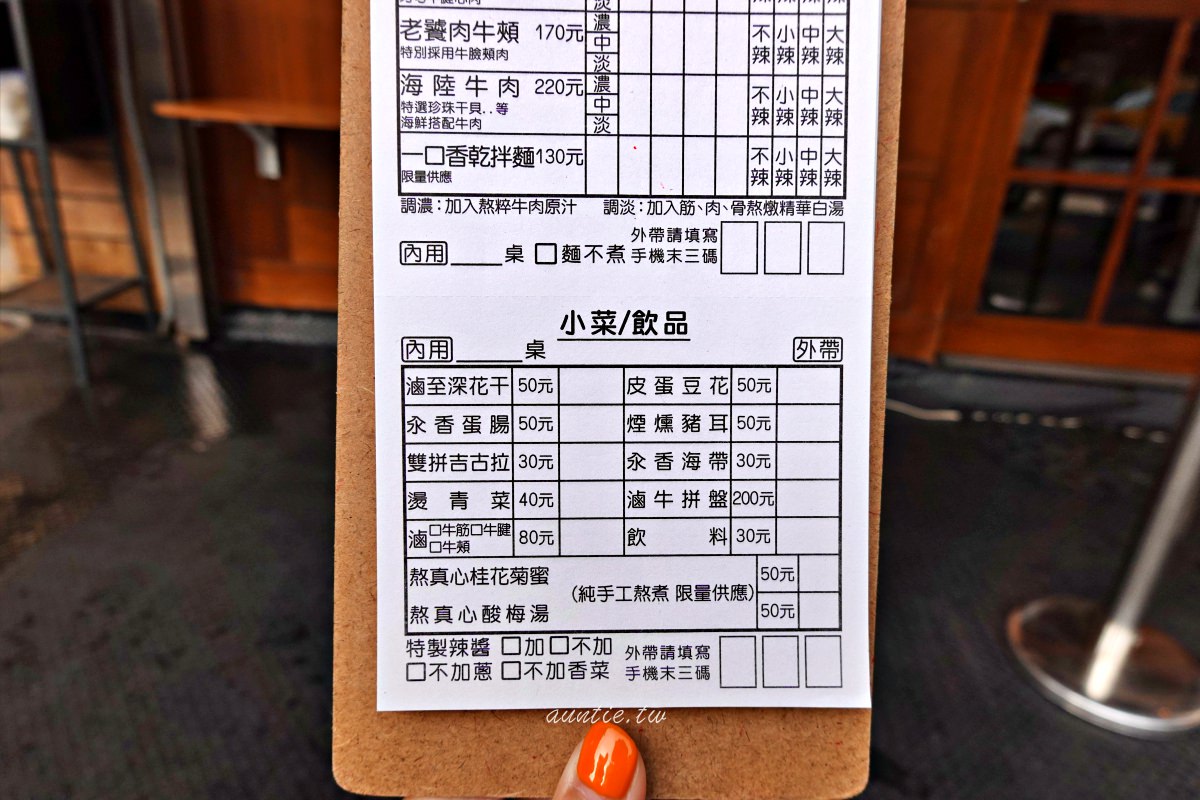 老饕肉牛頰 170元 濃 中 淡 不辣 小辣 中辣 大辣
特別採用牛臉頰肉
海陸牛肉 220元 濃 中 淡 不辣 小辣 中辣 大辣
特選珍珠干貝..等
海鮮搭配牛肉
一口香乾拌麵130元 不辣 小辣 中辣 大辣
限量供應
調濃：加入熬粹牛肉原汁 調淡：加入筋、肉、骨熬燉精華白湯
內用____桌 □麵不煮 外帶請填寫
手機末三碼
小菜/飲品
內用_____桌 外帶
滷至深花干 50元 皮蛋豆花 50元
汆香蛋腸 50元 煙燻豬耳 50元
雙拼吉古拉 30元 汆香海帶 30元
燙青菜 40元 滷牛拼盤 200元
滷 □牛筋□牛腱 □牛頰 80元 飲料 30元
熬真心桂花菊蜜 50元
(純手工熬煮 限量供應)
熬真心酸梅湯 50元
特製辣醬 □加 □不加 外帶請填寫
□不加蔥 □不加香菜 手機末三碼
auntie.tw